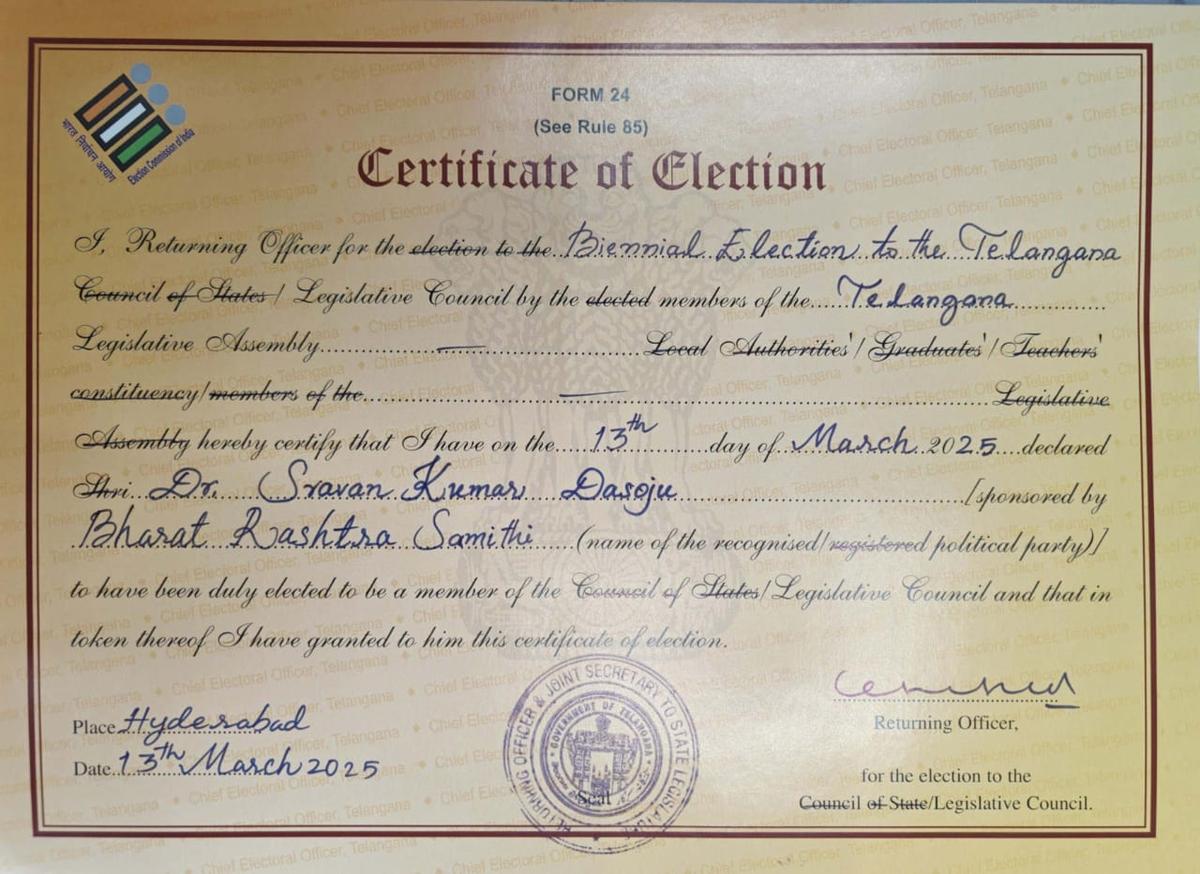 भारत निर्वाचन आयोग
Election Commission of India
FORM 24
(See Rule 85)
Certificate of Election
I, Returning Officer for the election to the Biennial Election to the Telangana
Council of States/ Legislative Council by the elected members of the....Telangana
Legislative Assembly.................... Local Authorities'/ Graduates'/ Teachers'
constituency/members of the.................... Legislative
Assembly hereby certify that I have on the....13th....day of March 2025....declared
Shri Dr. Sravan Kumar Dasoju....[sponsored by
Bharat Rashtra Samithi....(name of the recognised/registered political party)]
to have been duly elected to be a member of the Council of States/Legislative Council and that in
token thereof I have granted to him this certificate of election.
Place Hyderabad
Date 13th March 2025
RETURNING OFFICER & JOINT SECRETARY TO STATE LEGISLATURE
GOVERNMENT OF TELANGANA
Seal
Returning Officer,
for the election to the
Council of State/Legislative Council.
Chief Electoral Officer, Telangana